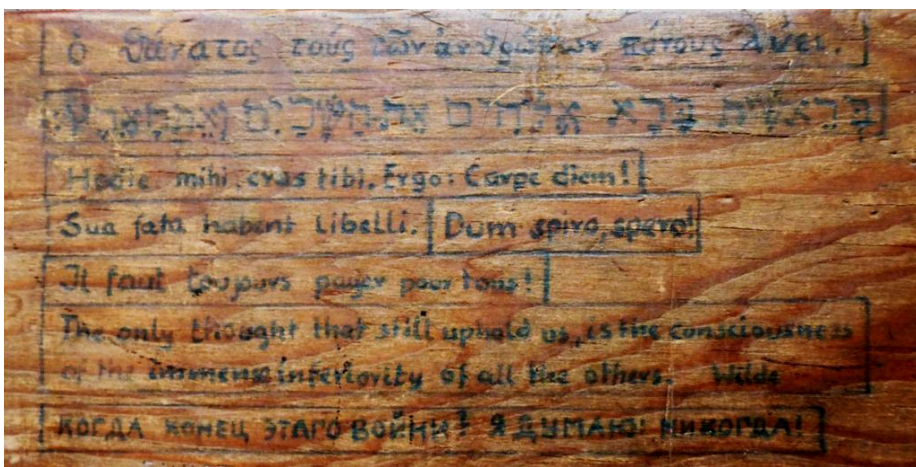 ὁ θάνατος τοὺς τῶν ἀνθρώπων πόνους λύει.
בְּרֵאשִׁית בָּרָא אֱלֹהִים אֶת־הַשָּׁמַיִם וְאֵת־הָאָרֶץ
Hodie mihi, cras tibi. Ergo: Carpe diem!
Sua fata habent libelli. Dum spiro, spero!
Il faut toujours payer pour tous!
The only thought that still uphold us, is the consciousness
of the immense inferiority of all the others. Wilde
КОГДА КОНЕЦ ЭТАГО ВОЙНИ? Я ДУМАЮ: НИКОГДА!